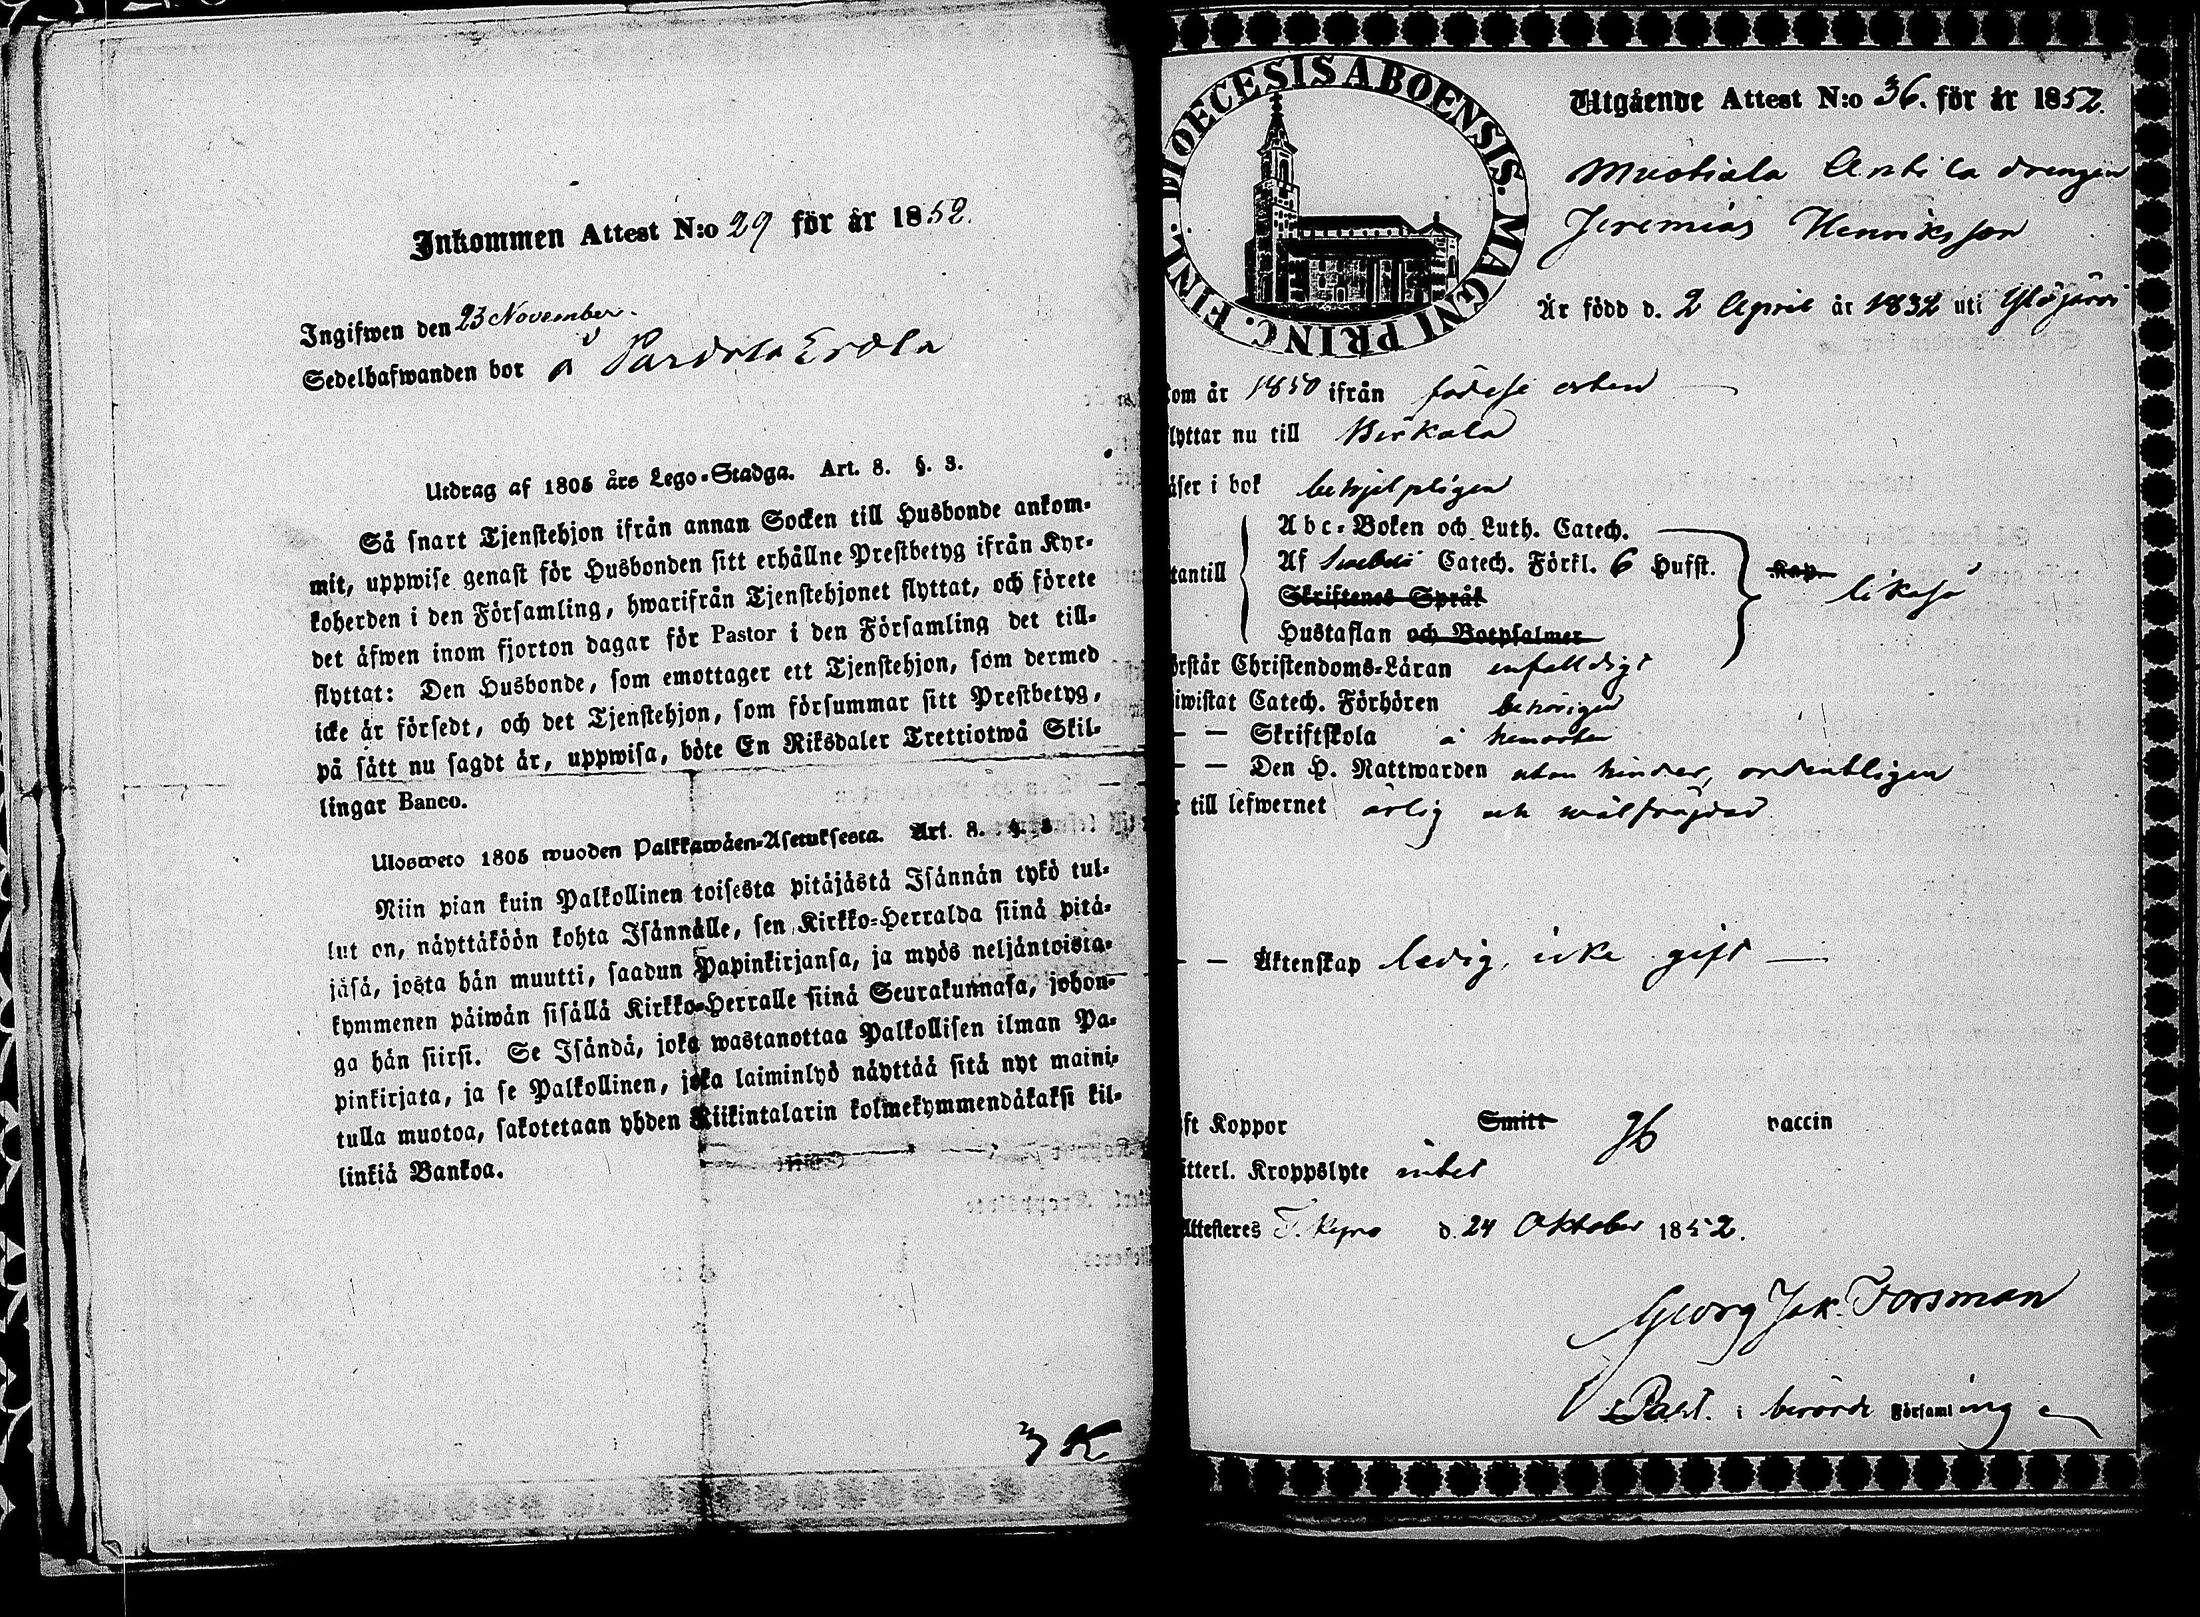 Inkommen Attest N:o 29 för år 1852.
Ingifwen den 23 November.
Sedelhafwanden bor å Erola
Utdrag af 1805 års Lego-Stadga. Art. 8. §. 3.
Så snart Tjenstehjon ifrån annan Socken till Husbonde ankom-
mit, uppwise genast för Husbonden sitt erhållne Prestbetyg ifrån Kyr-
koherden i den Församling, hwarifrån Tjenstehjonet flyttat, och förete
det äfwen inom fjorton dagar för Pastor i den Församling det till-
flyttat: Den Husbonde, som emottager ett Tjenstehjon, som dermed
icke är försedt, och det Tjenstehjon, som försummar sitt Prestbetyg,
på sätt nu sagdt är, uppwisa, böte En Riksdaler Trettiotwå Skil-
lingar Banco.
Ulosweto 1805 wuoden Palkkawäen-Asetuksesta. Art. 8. §. 3
Niin pian kuin Palkollinen toisesta pitäjästä Isännän tykö tul-
lut on, näyttäköön kohta Isännälle, sen Kirkko-Herralda siinä pitä-
jäsä, josta hän muutti, saadun Papinkirjansa, ja myös neljäntoista-
kymmenen päiwän sisällä Kirkko-Herralle siinä Seurakunnasa, johon-
ga hän siirsi. Se Isändä, joka wastanottaa Palkollisen ilman Pa-
pinkirjata, ja se Palkollinen, joka laiminlyö näyttää sitä nyt maini-
tulla muotoa, sakotetaan yhden Riikintalarin kolmekymmendäkaksi kil-
linkiä Bankoa.
3 K
DIOECESIS ABOENSIS. MAGNI PRINC. FINL.
Utgående Attest N:o 36. för år 1852.
Mustiala Antila drengen
Jeremias Henriksson
Är född d. 2 April år 1832 uti Ylöjärvi
om år 1850 ifrån födelse orten
lyttar nu till Birkala
äser i bok behjelpligen
Abc-Boken och Luth. Catech.
tantill Af Swebelii Catech. Förkl. 6 Hufst. Kap. likaså
Skriftenes Språk
Hustaflan och Botpsalmer
örstår Christendoms-Läran enfaldigt
iwistat Catech. Förhören behörigen
— — Skriftskola å hemorten
— — Den H. Nattwarden utan hinder, ordentligen
r till lefwernet ärlig och wälfrägdad
— — Äktenskap ledig, icke gift —
ft Koppor Smitt vaccin
itterl. Kroppslyte intet
Attesteres T. Kyro d. 24 Oktober 1852.
Georg Jak. Forsman
Past. i berörde Församling